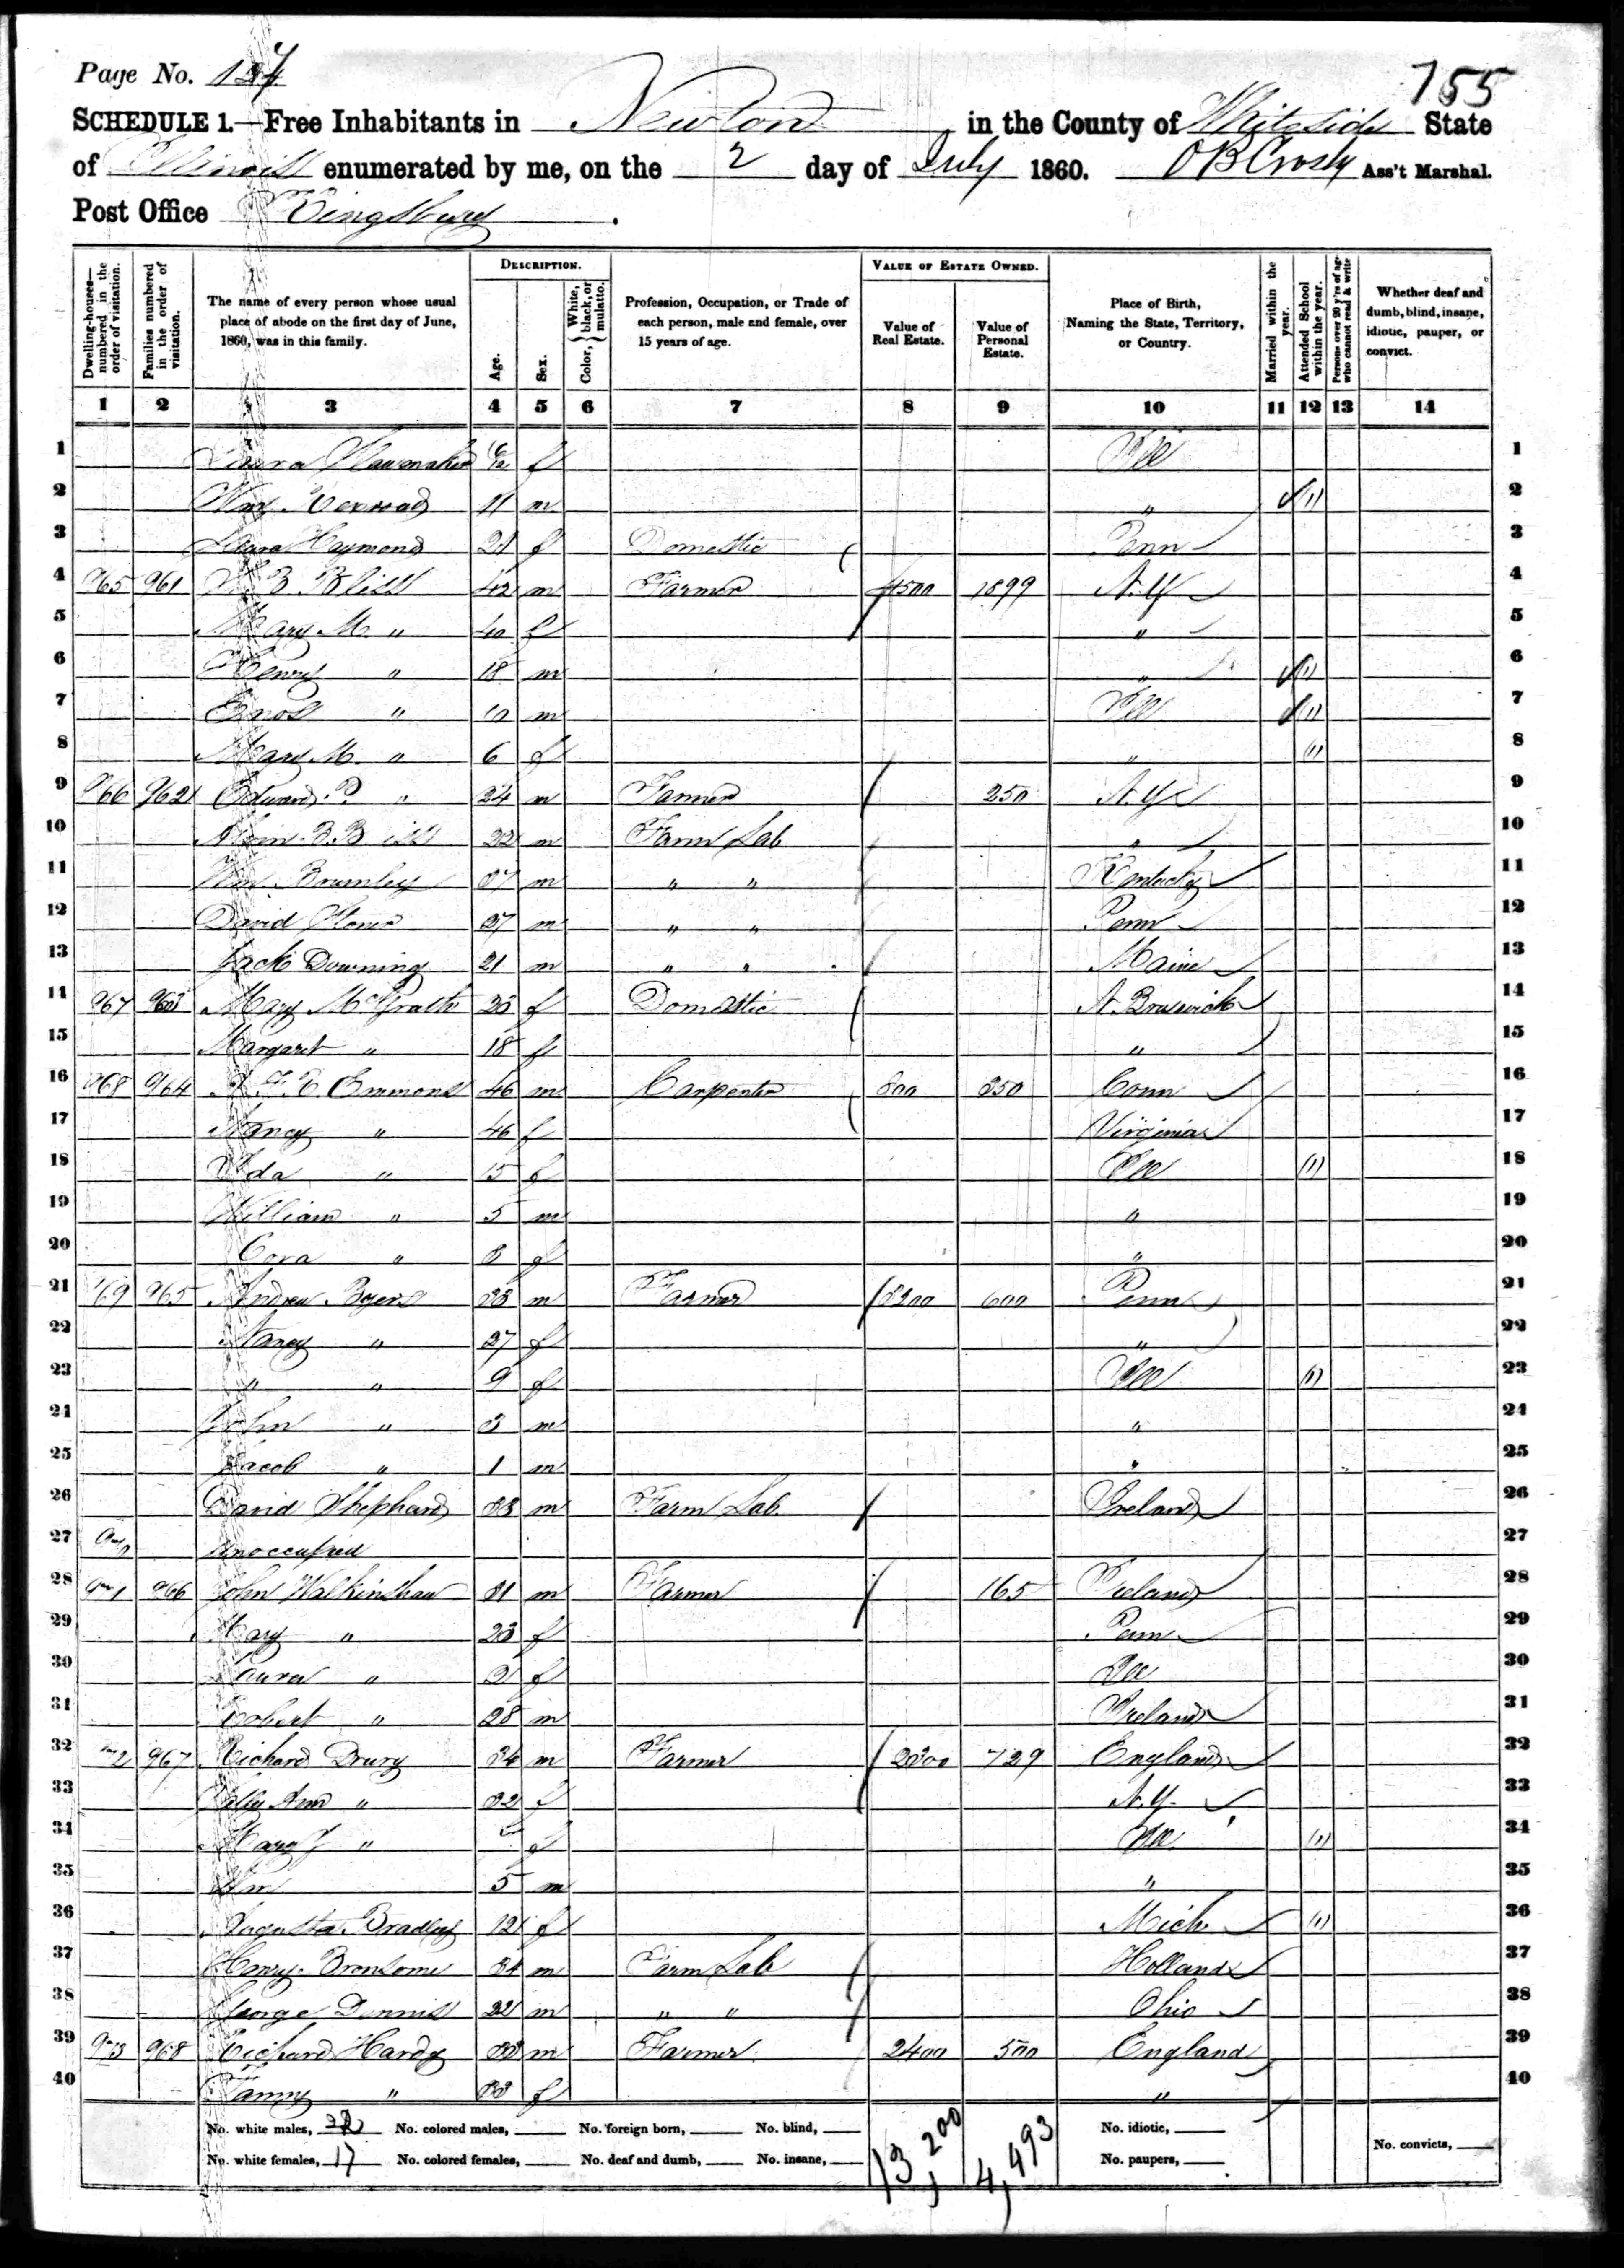 Page No. 154
755
SCHEDULE 1.—Free Inhabitants in Newton in the County of Whiteside State
of Illinois enumerated by me, on the 2 day of July 1860. O B Crosby Ass't Marshal.
Post Office Kingsbury.
Dwelling-houses—numbered in the order of visitation.
Families numbered in the order of visitation.
The name of every person whose usual place of abode on the first day of June, 1860, was in this family.
DESCRIPTION.
Age.
Sex.
Color, { White, black, or mulatto.
Profession, Occupation, or Trade of each person, male and female, over 15 years of age.
VALUE OF ESTATE OWNED.
Value of Real Estate.
Value of Personal Estate.
Place of Birth, Naming the State, Territory, or Country.
Married within the year.
Attended School within the year.
Persons over 20 y'rs of age who cannot read & write
Whether deaf and dumb, blind, insane, idiotic, pauper, or convict.
1 2 3 4 5 6 7 8 9 10 11 12 13 14
1 6/12 f Ill 1
2 Wm 11 m " 1 2
3 Haymond 21 f Domestic Penn 3
4 965 961 B Bliss 42 m Farmer 4500 1899 N.Y 4
5 Mary M. " 40 f " 5
6 Henry " 18 m " 1 6
7 Enos " 10 m Ill 1 7
8 Mary M. " 6 f " 1 8
9 966 962 Edward P. " 24 m Farmer 250 N.Y 9
10 B. Bliss 22 m Farm Lab " 10
11 Wm. Brumley 37 m " " Kentucky 11
12 David 27 m " " Penn 12
13 Jack Downing 21 m " " Maine 13
14 967 963 Mary McGrath 23 f Domestic N. Brunswick 14
15 Margaret " 18 f " 15
16 968 964 Emmons 46 m Carpenter 800 350 Conn 16
17 Nancy " 46 f Virginia 17
18 Ida " 15 f Ill 1 18
19 William " 5 m " 19
20 Cora " 3 f " 20
21 969 965 Andrew Byers 33 m Farmer 3200 600 Penn 21
22 Nancy " 27 f " 22
23 " " 9 f Ill 1 23
24 John " 3 m " 24
25 Jacob " 1 m " 25
26 David Shephard 33 m Farm Lab. Ireland 26
27 970 Unoccupied 27
28 971 966 John Walkinshaw 31 m Farmer 165 Ireland 28
29 Mary " 23 f Penn 29
30 Laura " 2 f Ill 30
31 Robert " 28 m Ireland 31
32 972 967 Richard Drury 34 m Farmer 2300 729 England 32
33 Sally Ann " 32 f N.Y. 33
34 Mary J " f Ill 1 34
35 Wm 5 m " 35
36 Augusta Bradley 12 f Mich 1 36
37 Henry Bronsome 34 m Farm Lab Holland 37
38 George Dennis 22 m " " Ohio 38
39 973 968 Richard Hardy 33 m Farmer 2400 500 England 39
40 Fanny " 33 f " 40
No. white males, 22 No. colored males, No. foreign born, No. blind, 13,200 4,493 No. idiotic,
No. white females, 17 No. colored females, No. deaf and dumb, No. insane, No. paupers, No. convicts,